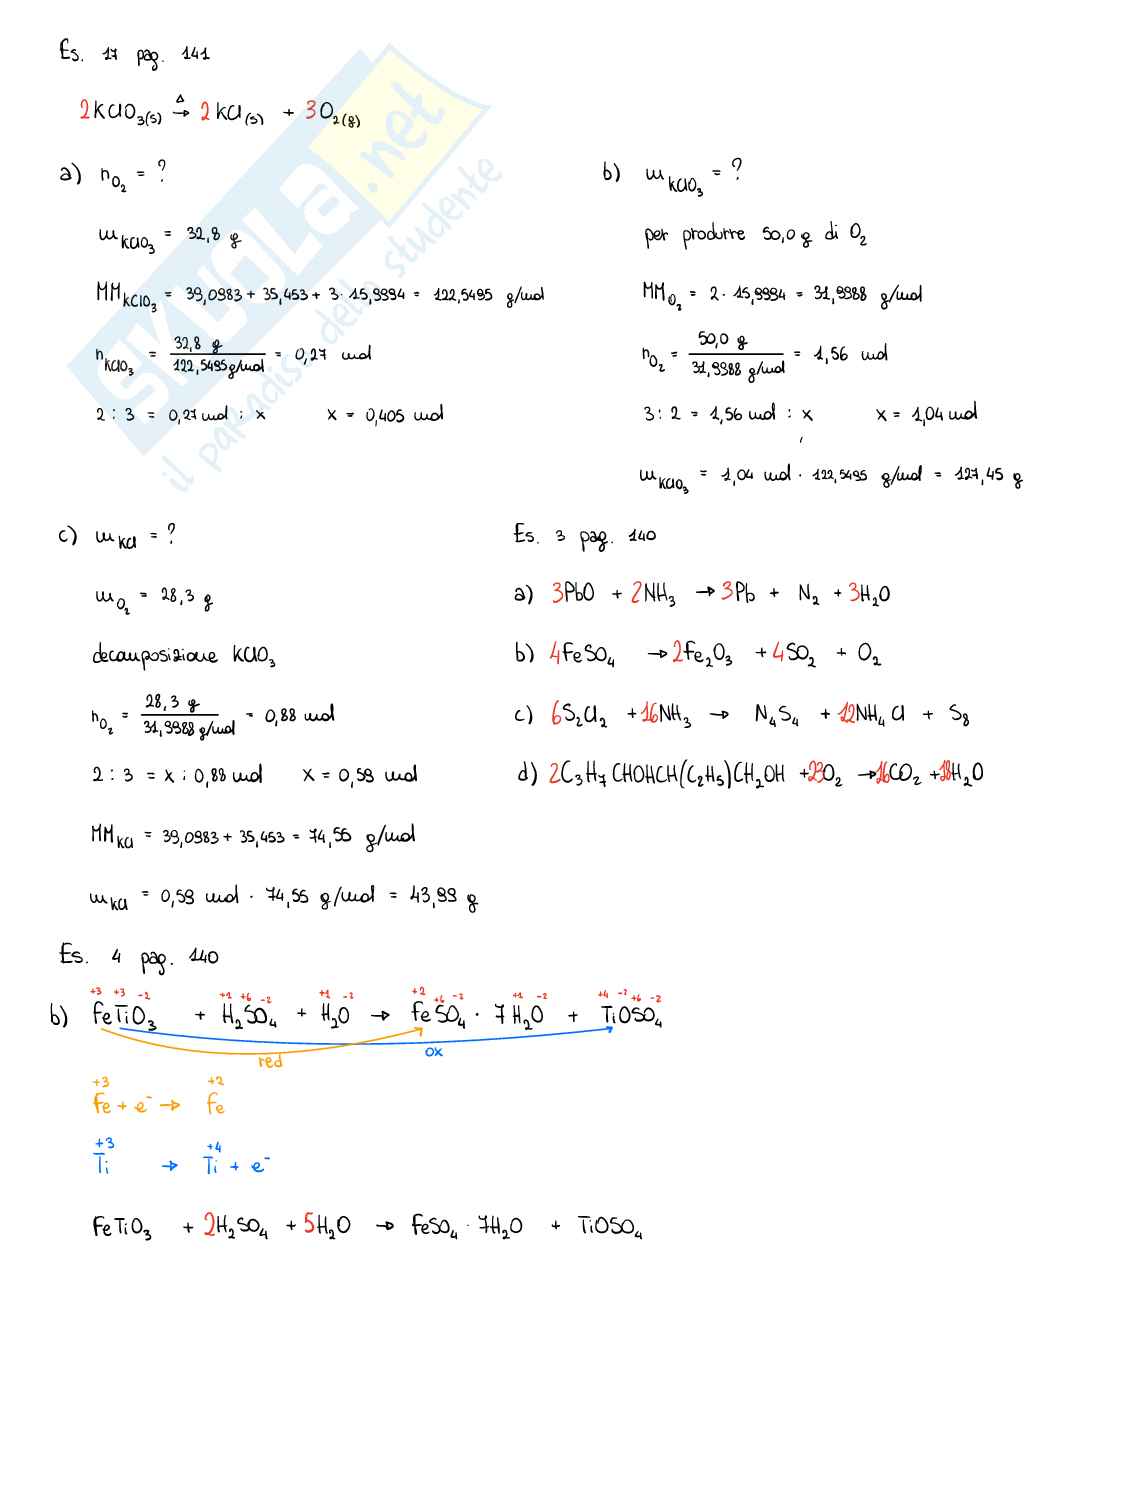 Es. 17 pag. 141
2KClO3(s) Δ→ 2KCl(s) + 3O2(g)
a) nO2 = ?
mKClO3 = 32,8 g
MMKClO3 = 39,0983 + 35,453 + 3·15,9994 = 122,5495 g/mol
nKClO3 = 32,8 g / 122,5495 g/mol = 0,27 mol
2 : 3 = 0,27 mol : x x = 0,405 mol
b) mKClO3 = ?
per produrre 50,0 g di O2
MMO2 = 2 · 15,9994 = 31,9988 g/mol
nO2 = 50,0 g / 31,9988 g/mol = 1,56 mol
3 : 2 = 1,56 mol : x x = 1,04 mol
mKClO3 = 1,04 mol · 122,5495 g/mol = 127,45 g
c) mKCl = ?
mO2 = 28,3 g
decomposizione KClO3
nO2 = 28,3 g / 31,9988 g/mol = 0,88 mol
2 : 3 = x : 0,88 mol x = 0,59 mol
MMKCl = 39,0983 + 35,453 = 74,55 g/mol
mKCl = 0,59 mol · 74,55 g/mol = 43,99 g
Es. 3 pag. 140
a) 3PbO + 2NH3 → 3Pb + N2 + 3H2O
b) 4FeSO4 → 2Fe2O3 + 4SO2 + O2
c) 6S2Cl2 + 16NH3 → N4S4 + 12NH4Cl + S8
d) 2C3H7CHOHCH(C2H5)CH2OH + 23O2 → 16CO2 + 18H2O
Es. 4 pag. 140
+3 +3 -2 +1 +6 -2 +1 -2 +2 +6 -2 +1 -2 +4 -2 +6 -2
b) FeTiO3 + H2SO4 + H2O → FeSO4 · 7H2O + TiOSO4
ox
red
+3 +2
Fe + e- → Fe
+3 +4
Ti → Ti + e-
FeTiO3 + 2H2SO4 + 5H2O → FeSO4 · 7H2O + TiOSO4
SKUOLA.net
il paradiso dello studente